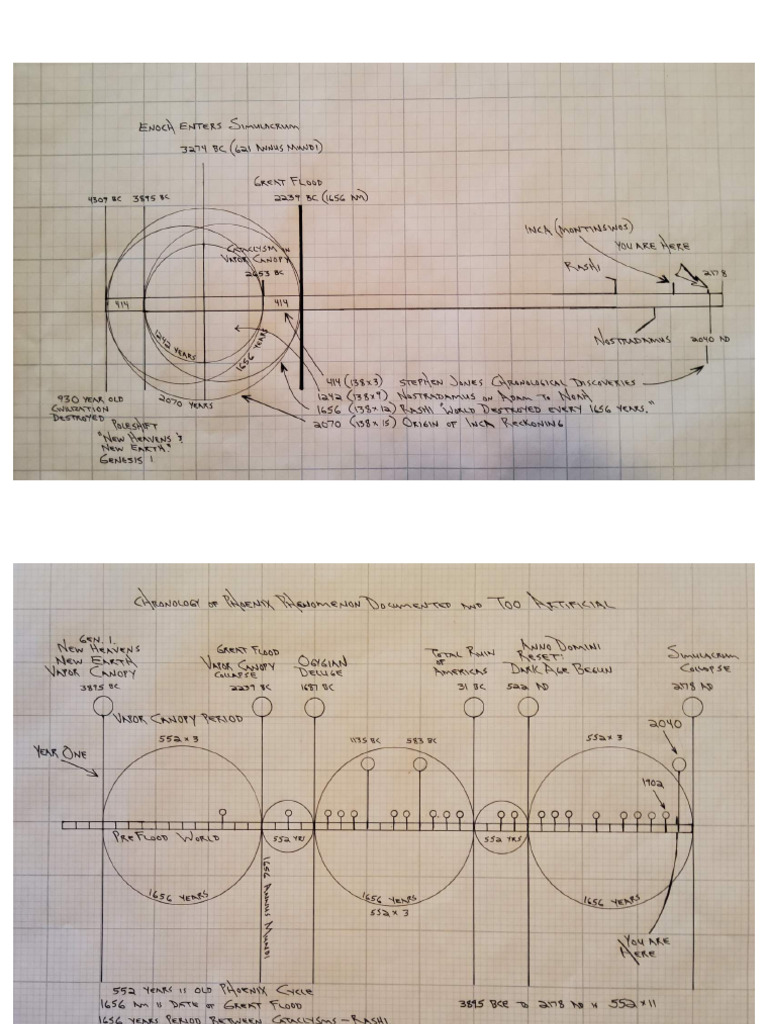 ENOCH ENTERS SIMULACRUM
3274 BC (621 ANNUS MUNDI)
GREAT FLOOD
4309 BC 3895 BC 2239 BC (1656 AM)
INCA (MONTINSWOS)
YOU ARE HERE
CATACLYSM IN
VAPOR CANOPY
2653 BC
RASHI
2178
414 414
NOSTRADAMUS 2040 AD
1242 YEARS
1656 YEARS
2070 YEARS
414 (138x3) STEPHEN JONES CHRONOLOGICAL DISCOVERIES
1242 (138x9) NOSTRADAMUS ON ADAM TO NOAH
1656 (138x12) RASHI "WORLD DESTROYED EVERY 1656 YEARS."
2070 (138x15) ORIGIN OF INCA RECKONING
930 YEAR OLD
CIVILIZATION
DESTROYED
POLESHIFT
"NEW HEAVENS &
NEW EARTH."
GENESIS 1
CHRONOLOGY OF PHOENIX PHENOMENON DOCUMENTED AND TOO ARTIFICIAL
GEN. 1.
NEW HEAVENS
NEW EARTH
VAPOR CANOPY
3895 BC
GREAT FLOOD
VAPOR CANOPY
COLLAPSE
2239 BC
OGYGIAN
DELUGE
1687 BC
TOTAL RUIN
OF
AMERICAS
31 BC
ANNO DOMINI
RESET:
DARK AGE BEGUN
522 AD
SIMULACRUM
COLLAPSE
2178 AD
VAPOR CANOPY PERIOD
552 x 3
1135 BC 583 BC
552 x 3
2040
YEAR ONE
1902
PREFLOOD WORLD
552 YRS
552 YRS
1656 YEARS
1656 ANNUS MUNDI
1656 YEARS
552 x 3
1656 YEARS
YOU ARE
HERE
552 YEARS IS OLD PHOENIX CYCLE
1656 AM IS DATE OF GREAT FLOOD
3895 BCE TO 2178 AD IS 552x11
1656 YEARS PERIOD BETWEEN CATACLYSMS – RASHI